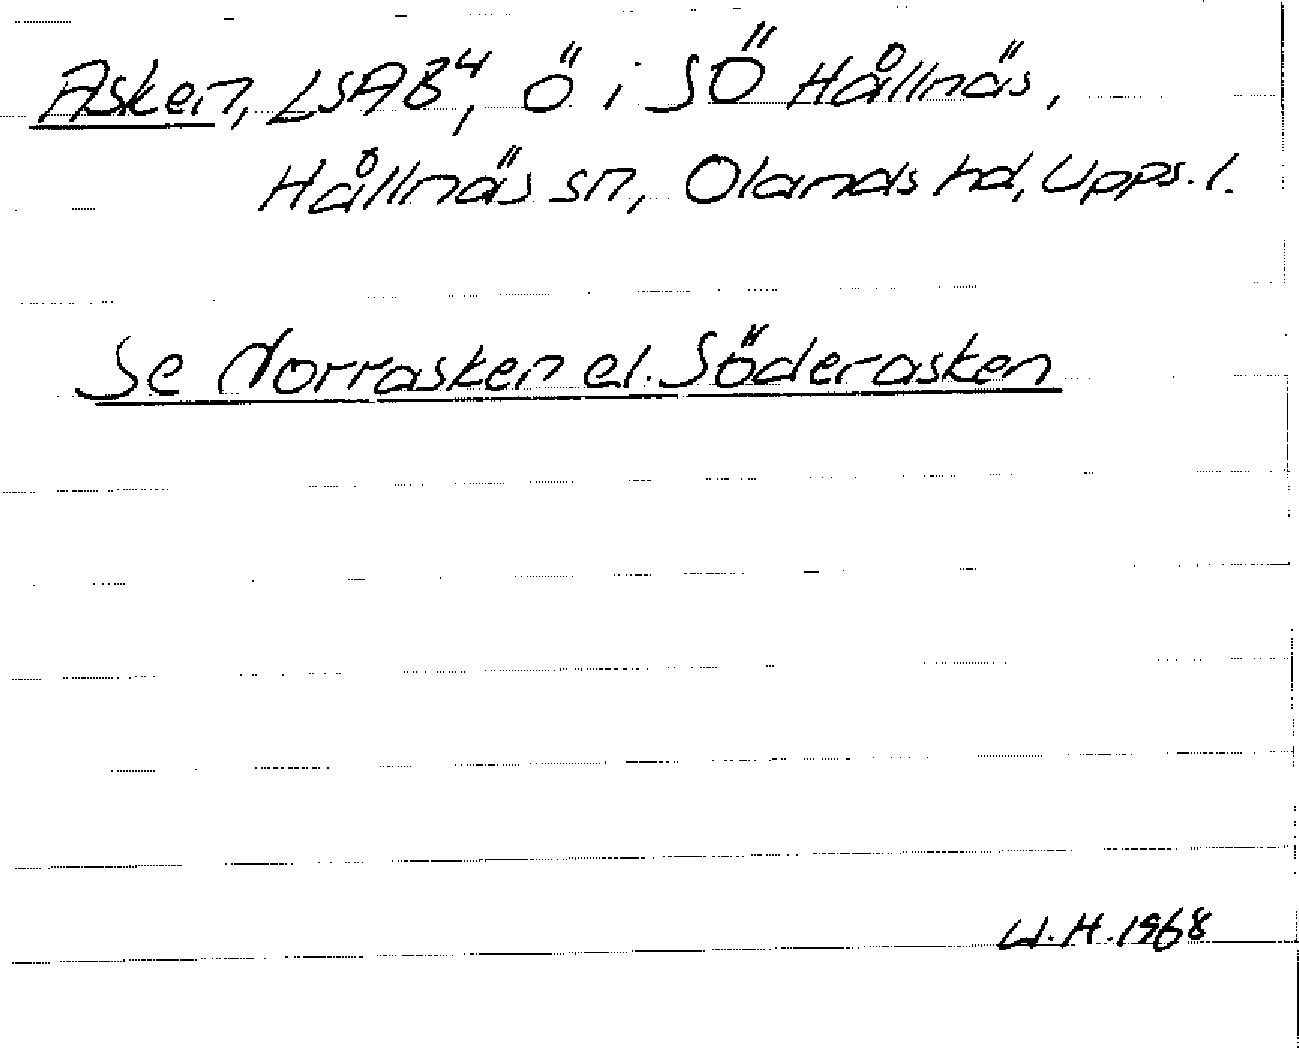 Asken, LSAB⁴, ö i SÖ Hållnäs,
Hållnäs sn, Olands hd, Upps. l.
Se Norrasken el. Söderasken
W.H. 1968